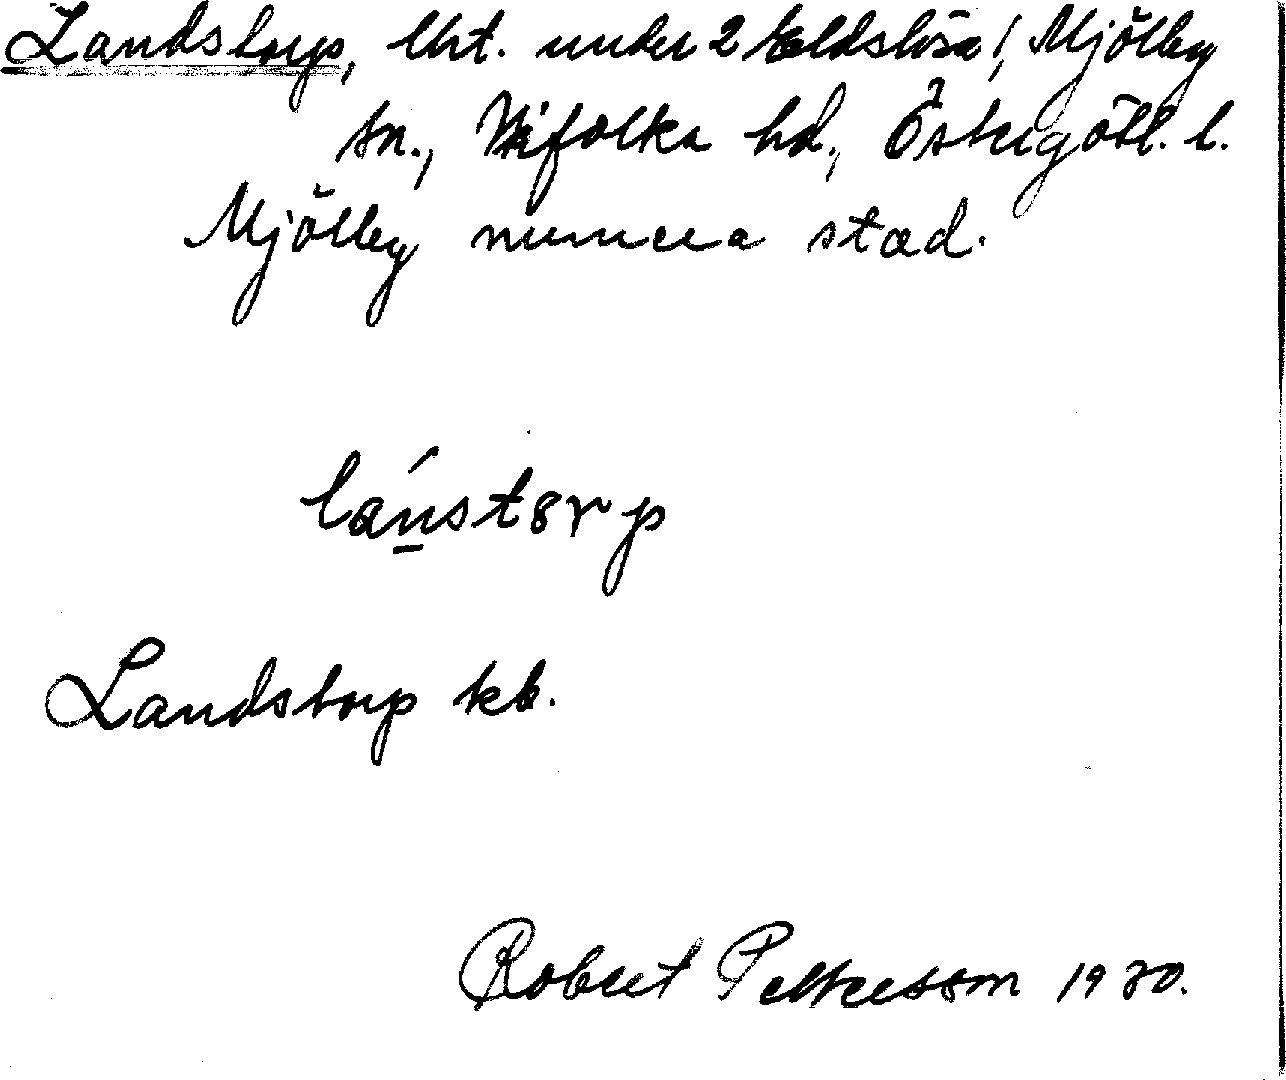 Landstorp, lht. under 2 Eldslösa!, Mjölby
sn., Vifolka hd., Östergötl. l.
Mjölby numera stad.
lánstørp
Landstorp kb.
Robert Pettersson 1930.